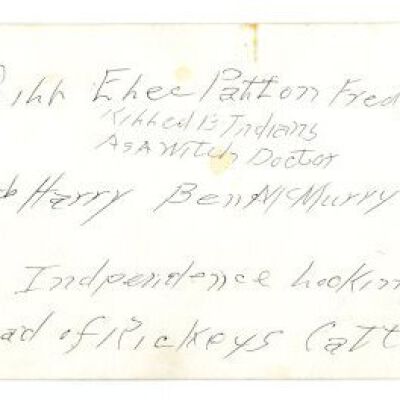 Bill Ehee Patton Fred
Killed 15 Indians
As A Witch Doctor
b Harry Ben McMurry
Indpendence Lookin
ad of Rickeys Catt